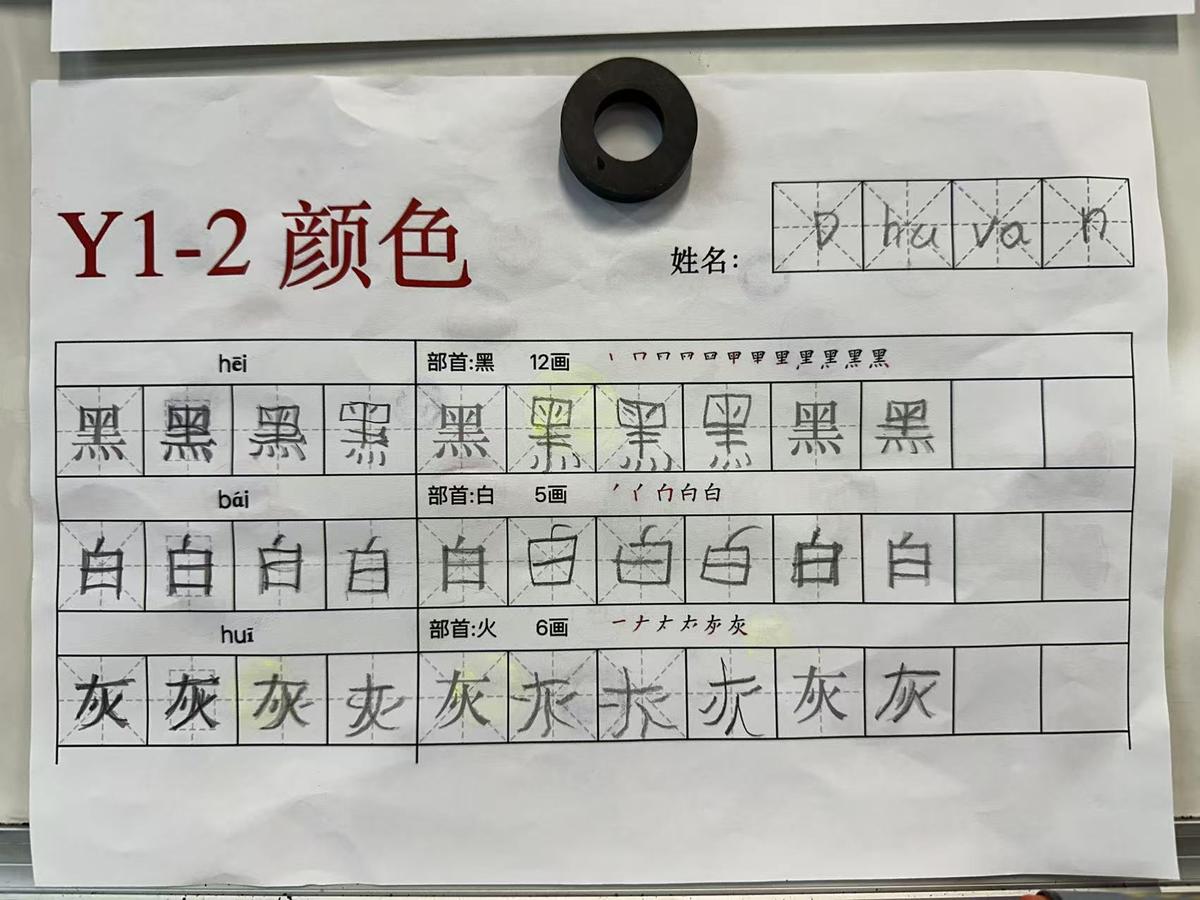 Y1-2 颜色
姓名: Dhuvan
hēi 部首:黑 12画 丨 冂 冂 罒 罒 甲 甲 里 里 黑 黑 黑
黑 黑 黑 黑 黑 黑 黑 黑 黑 黑
bái 部首:白 5画 ノ 亻 冂 白 白
白 白 白 白 白 白 白 白 白 白
huī 部首:火 6画 一 ナ 𠂇 灰 灰 灰
灰 灰 灰 灰 灰 灰 灰 灰 灰 灰